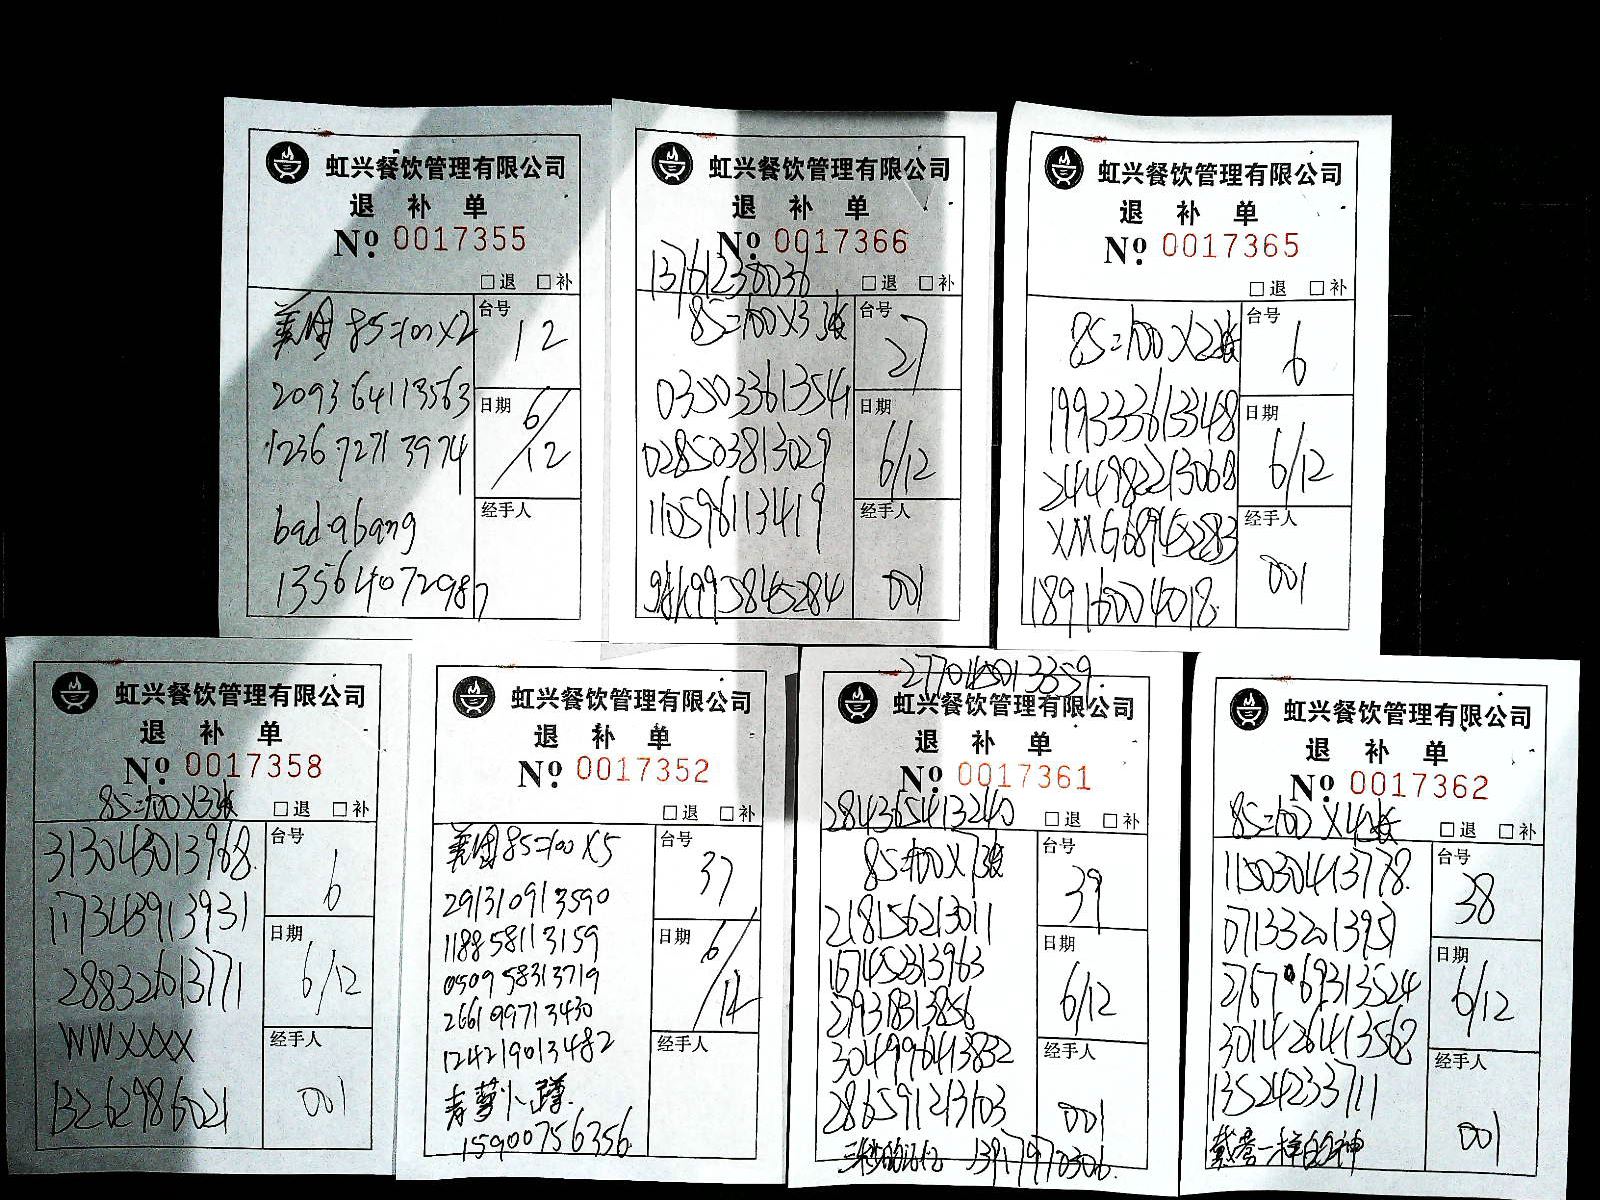 虹兴餐饮管理有限公司
退 补 单
Nº 0017355
□退 □补
美团 85=100×2
台号
12
209364113563
日期
6/12
123672713974
badabang
经手人
13564072987
虹兴餐饮管理有限公司
退 补 单
Nº 0017366
13761238036
□退 □补
85=100×3张
台号
27
035033613541
日期
6/12
028503813029
110596113419
经手人
001
虹兴餐饮管理有限公司
退 补 单
Nº 0017365
□退 □补
85=100×2张
台号
6
199333613348
日期
6/12
2444982213068
XMG689452283
经手人
18916004018
001
虹兴餐饮管理有限公司
退 补 单
Nº 0017358
85=100×3张
□退 □补
台号
6
313043013968
117343913931
日期
6/12
288326013771
WWXXXX
经手人
13262986021
001
虹兴餐饮管理有限公司
退 补 单
Nº 0017352
□退 □补
美团85=100×5
台号
37
291310913590
118858113159
日期
6/12
050958313719
266199713430
124219013482
经手人
15900756356
277045013359
虹兴餐饮管理有限公司
退 补 单
Nº 0017361
284365413240
□退 □补
85=100×7张
台号
39
218156213011
167452313963
日期
6/12
279318313856
304996413832
经手人
286591213103
001
13917970306
虹兴餐饮管理有限公司
退 补 单
Nº 0017362
85=100×4张
□退 □补
台号
38
115030413778
071332013951
日期
6/12
276706931 3524
301426413568
经手人
13524233711
001
一样的神